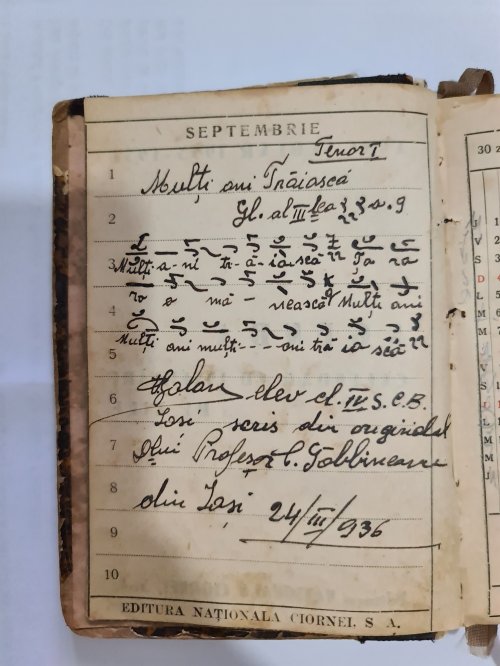 SEPTEMBRIE
Tenor I
1
Mulți ani Trăiască
2
Gl. al III lea
3
Mulți-a-ni tră-ia-scă Țа ra
ro o mâ - nească Mulți ani
4
Mulți ani mulți---- ani tră ia scă
5
6
elev cl. IV S.C.B.
Iași scris din originalul
7
Dlui Profesor C.
8
din Iași 24/III/936
9
10
EDITURA NAȚIONALA CIORNEI, S A.
30 z
J
V
S
D
L
M
M